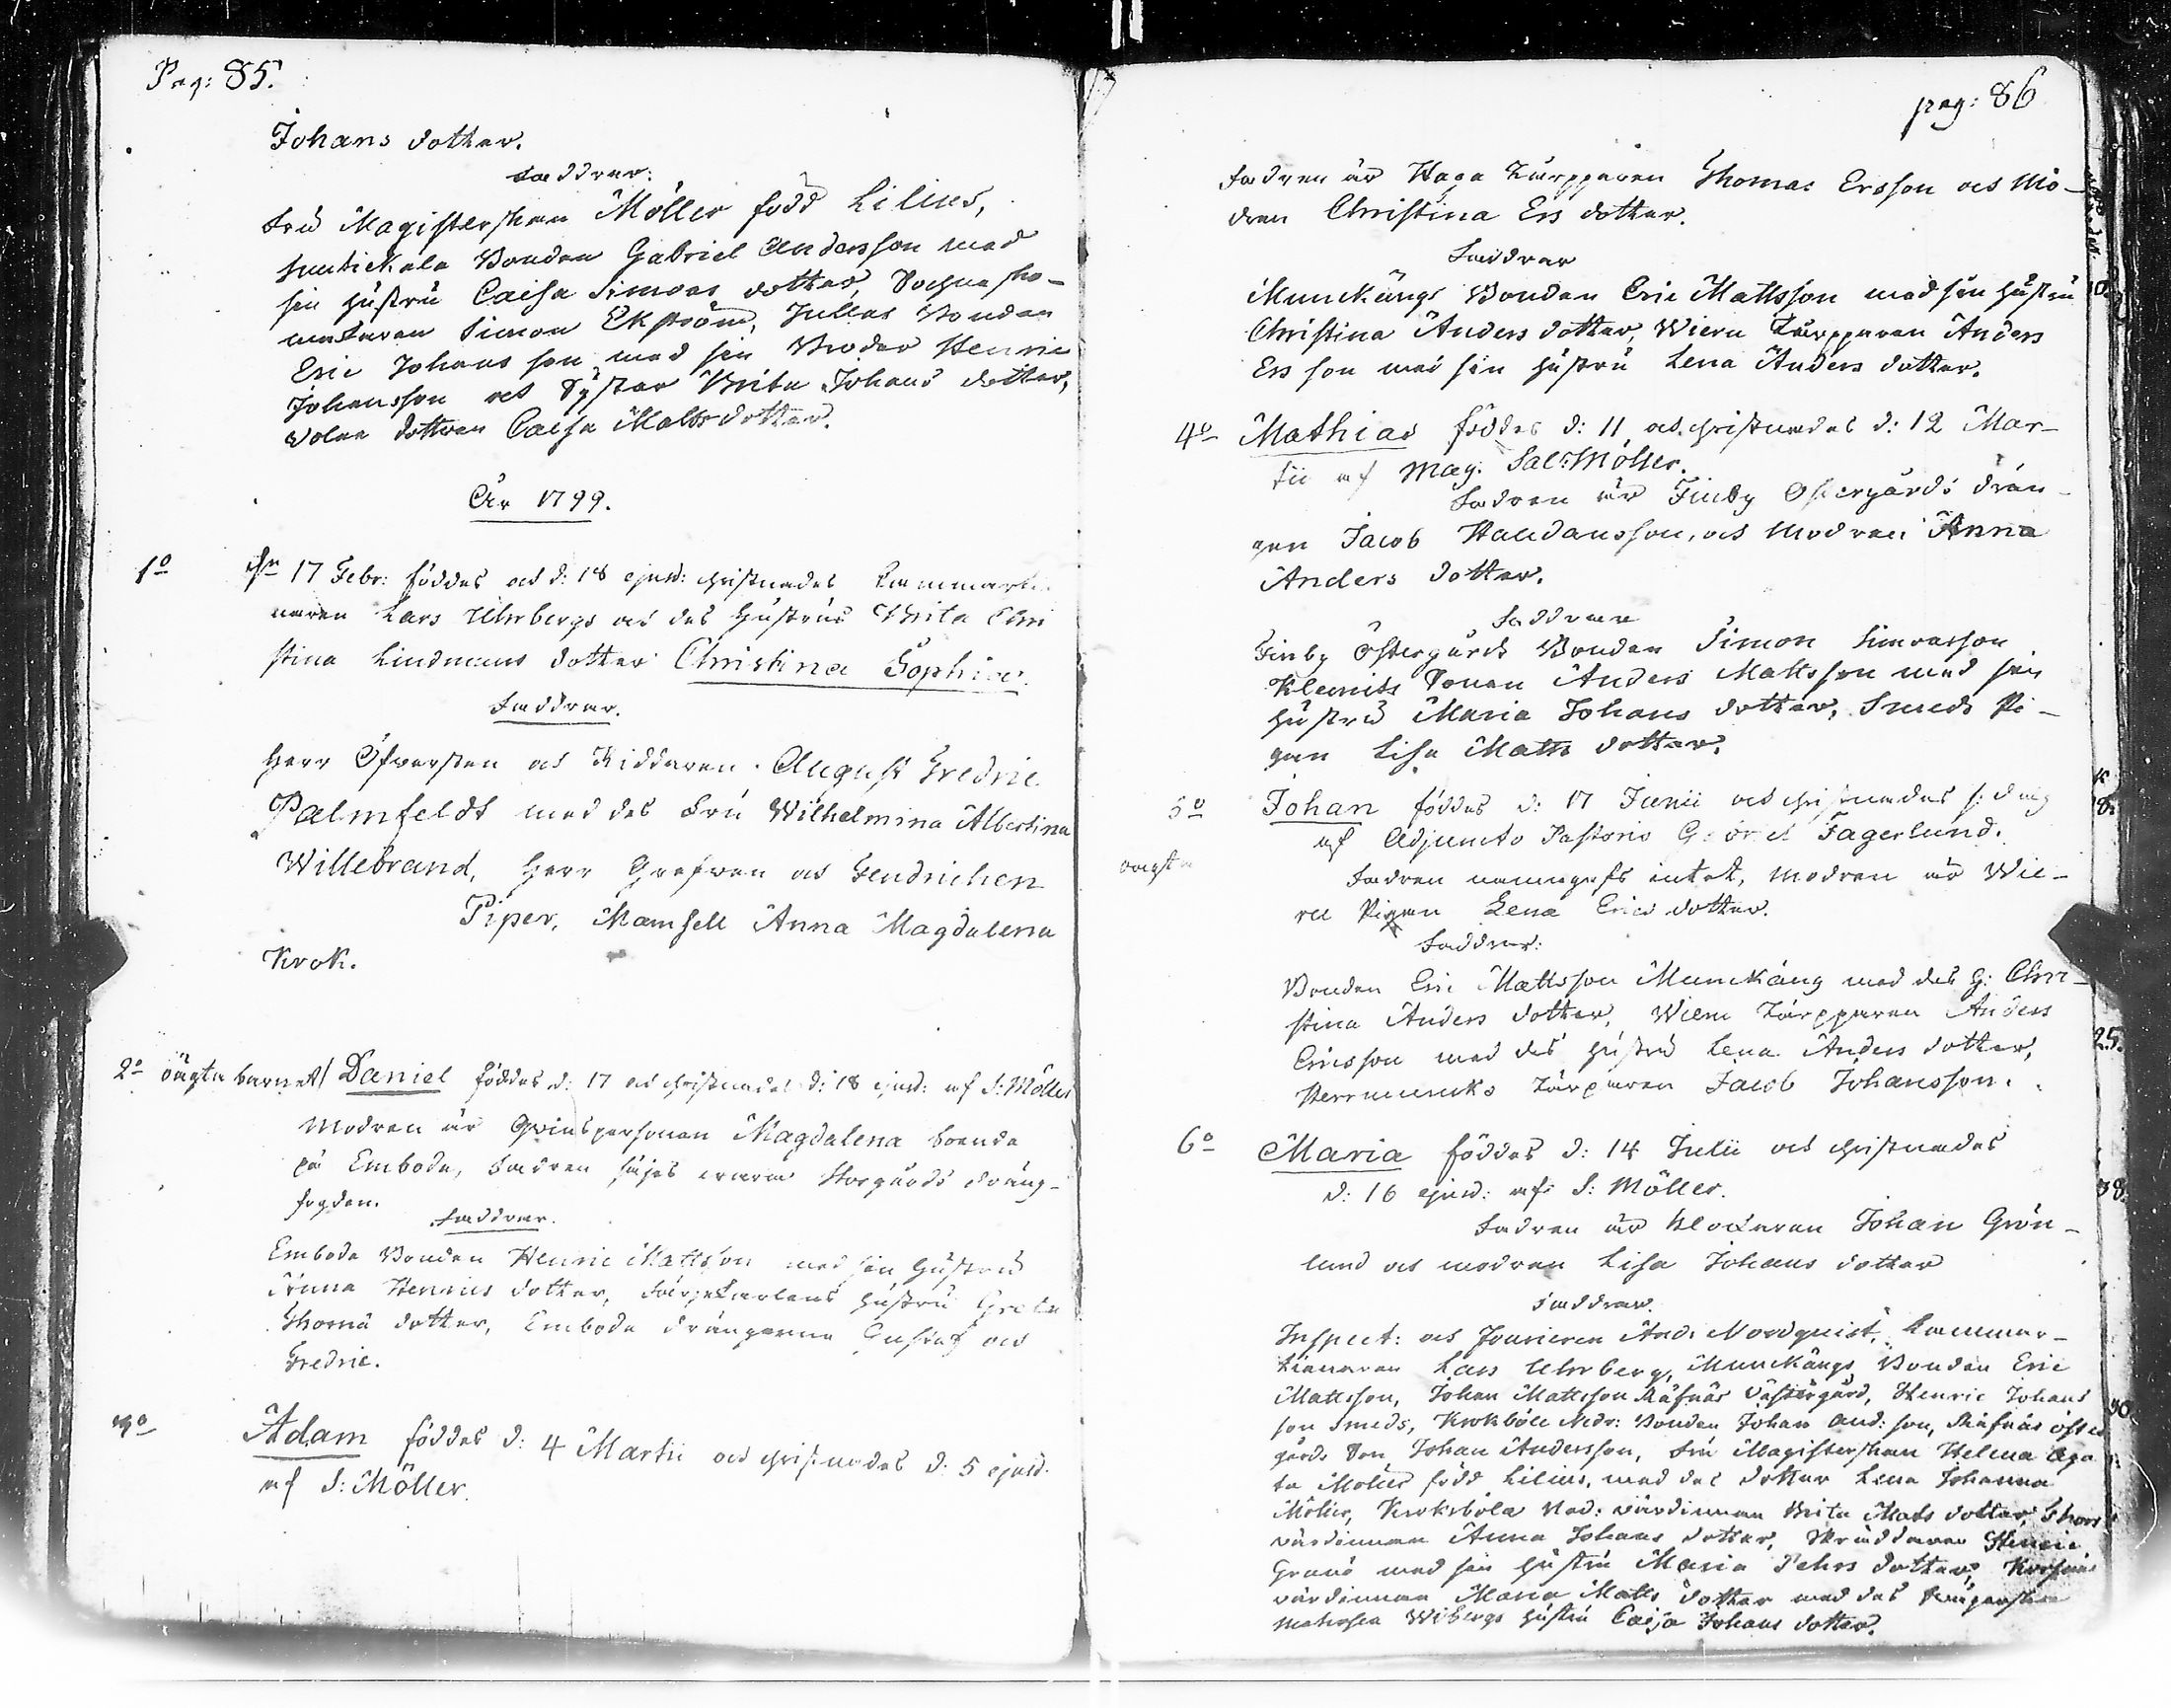 Pag: 85.
Johans dotter.
Faddrar:
Fru Magisterskan Möller född Lilius,
Bonden Gabriel Andersson med
sin hustru Caisa Simons dotter, Sockne sko-
makaren Simon Ekström, Jullas Bonden
Eric Johans son med sin Broder Henric
Johansson och Syster Brita Johans dotter,
dottren Caisa Matts dotter.
År 1799.
1o
d: 17 Febr: föddes och d: 18 ejusd: christnades Kammartie-
naren Lars Uhrbergs och des hustrus Brita Chri
stina Lindmans dotter Christina Sophia.
Faddrar.
Herr Öfversten och Riddaren August Fredric
Palmfeldt med des Fru Wilhelmina Albertina
Willebrand, Herr Grefven och Hendrichen
Piper, Mamsell Anna Magdalena
Krok.
2o oägta barnet/ Daniel föddes d: 17 och christnades d: 18 ejusd: af S: Möller
Modren är Qvinspersonen Magdalena boende
på Embode, Fadren säjes wara Storgårds dräng-
fogden.
Faddrar.
Embode Bonden Henric Mattsson med sin hustru
Anna Henrics dotter, Färjekarlens hustru Greta
Thomæ dotter, Embode drängarne Gustaf och
Fredric.
3o
Adam föddes d: 4 Martii och christnades d: 5 ejusd.
af S: Möller.
pag: 86
Fadren är Haga Torpparen Thomas Ersson och Mo-
dren Christina Ers dotter.
Faddrar
Munckängs Bonden Eric Mattsson med sin hustru
Christina Anders dotter, Torpparen Anders
Ers son med sin hustru Lena Anders dotter.
4o Mathias föddes d: 11, och christnades d: 12 Mar-
tii af Mag. Sal: Möller.
Fadren är Finby Östergårds drän-
gen Jacob, och Modren Anna
Anders dotter.
Faddrar
Finby Östergårds Bonden Simon Simonsson
Klemets Sonen Anders Mattsson med sin
hustru Maria Johans dotter, Smeds Pi-
gan Lisa Matts dotter.
5o Johan föddes d: 17 Junii och christnades s: dag
af Adjuncto Pastoris Fagerlund.
oägta
Fadren namngafs intet, Modren är
Pigan Lena Erics dotter.
Faddrar:
Bonden Eric Mattsson Munckäng med des h: Chri-
stina Anders dotter, Torpparen Anders
Ericsson med des hustru Lena Anders dotter,
Torparen Jacob Johansson.
6o Maria föddes d: 14 Julii och christnades
d: 16 ejusd: af S: Möller.
Fadren är Klockaren Johan Grön-
lund och modren Lisa Johans dotter
Faddrar.
Inspect: och Fourieren And: Nordquist, Kammar-
tienaren Lars Uhrberg, Munckängs Bonden Eric
Mattsson, Johan Mattsson Näfnäs Västergård, Henric Johans
son Smeds, Krokböle Nedr: Bonden Johan And: son, Näfnäs Öster
gårds Son Johan Andersson, Fru Magisterskan Helena Aga
ta Möller född Lilius, med des dotter Lena Johanna
Möller, Kroksböle Ned: värdinnan Brita Mats dotter,
värdinnan Anna Johans dotter, Skräddaren Henric
med sin hustru Maria Pehrs dotter,
värdinnan Maria Matts dotter med des
Matrosen Wibergs hustru Caisa Johans dotter.